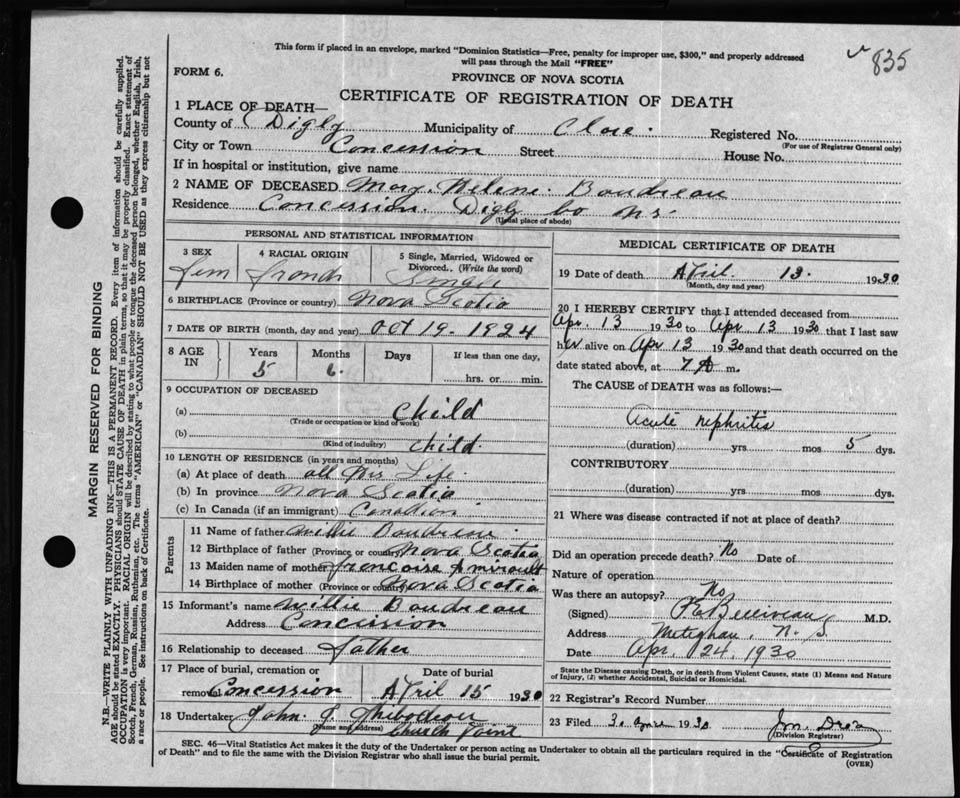 This form if placed in an envelope, marked "Dominion Statistics—Free, penalty for improper use, $300," and properly addressed
will pass through the Mail "FREE"
835
FORM 6.
PROVINCE OF NOVA SCOTIA
CERTIFICATE OF REGISTRATION OF DEATH
1 PLACE OF DEATH—
County of Digby Municipality of Clare. Registered No.
(For use of Registrar General only)
City or Town Concession Street House No.
If in hospital or institution, give name
2 NAME OF DECEASED Mary Helene Boudreau
Residence Concession Digby Co N.S.
(Usual place of abode)
PERSONAL AND STATISTICAL INFORMATION
3 SEX
Fem
4 RACIAL ORIGIN
French
5 Single, Married, Widowed or Divorced. (Write the word)
Single
6 BIRTHPLACE (Province or country) Nova Scotia
7 DATE OF BIRTH (month, day and year) Oct 19. 1924
8 AGE IN
Years 5
Months 6
Days
If less than one day,
hrs. or min.
9 OCCUPATION OF DECEASED
(a) child
(Trade or occupation or kind of work)
(b) child
(Kind of industry)
10 LENGTH OF RESIDENCE (in years and months)
(a) At place of death all his Life
(b) In province Nova Scotia
(c) In Canada (if an immigrant) Canadian
Parents
11 Name of father Willie Boudreau
12 Birthplace of father (Province or country) Nova Scotia
13 Maiden name of mother francoise Amirault
14 Birthplace of mother (Province or country) Nova Scotia
15 Informant's name Willie Boudreau
Address Concession
16 Relationship to deceased father
17 Place of burial, cremation or removal Concession
Date of burial
April 15 1930
18 Undertaker John J Thibodeau
(Name and address) Church Point
MEDICAL CERTIFICATE OF DEATH
19 Date of death April 13. 1930
(Month, day and year)
20 I HEREBY CERTIFY that I attended deceased from
Apr. 13 1930 to Apr 13 1930 that I last saw
her alive on Apr 13 1930 and that death occurred on the
date stated above, at 7 A m.
The CAUSE of DEATH was as follows:—
Acute nephritis
(duration) yrs mos 5 dys.
CONTRIBUTORY
(duration) yrs mos dys.
21 Where was disease contracted if not at place of death?
Did an operation precede death? No Date of
Nature of operation
Was there an autopsy? No
(Signed) Belliveau M.D.
Address Meteghan, N. S.
Date Apr. 24, 1930
State the Disease causing Death, or in death from Violent Causes, state (1) Means and Nature
of Injury, (2) whether Accidental, Suicidal or Homicidal.
22 Registrar's Record Number
23 Filed 30 1930
(Division Registrar)
SEC. 46—Vital Statistics Act makes it the duty of the Undertaker or person acting as Undertaker to obtain all the particulars required in the "Certificate of Registration
of Death" and to file the same with the Division Registrar who shall issue the burial permit.
(OVER)
MARGIN RESERVED FOR BINDING
N.B.—WRITE PLAINLY WITH UNFADING INK—THIS IS A PERMANENT RECORD. Every item of information should be carefully supplied.
AGE should be stated EXACTLY. PHYSICIANS should STATE CAUSE OF DEATH in plain terms, so that it may be properly classified. Exact statement of
OCCUPATION is very important. RACIAL ORIGIN will be described by stating to what people or tongue the deceased person belonged, whether English, Irish,
Scotch, French, German, Russian, Ruthenian, etc. The terms "AMERICAN" or "CANADIAN" SHOULD NOT BE USED as they express citizenship but not
a race or people. See instructions on back of Certificate.